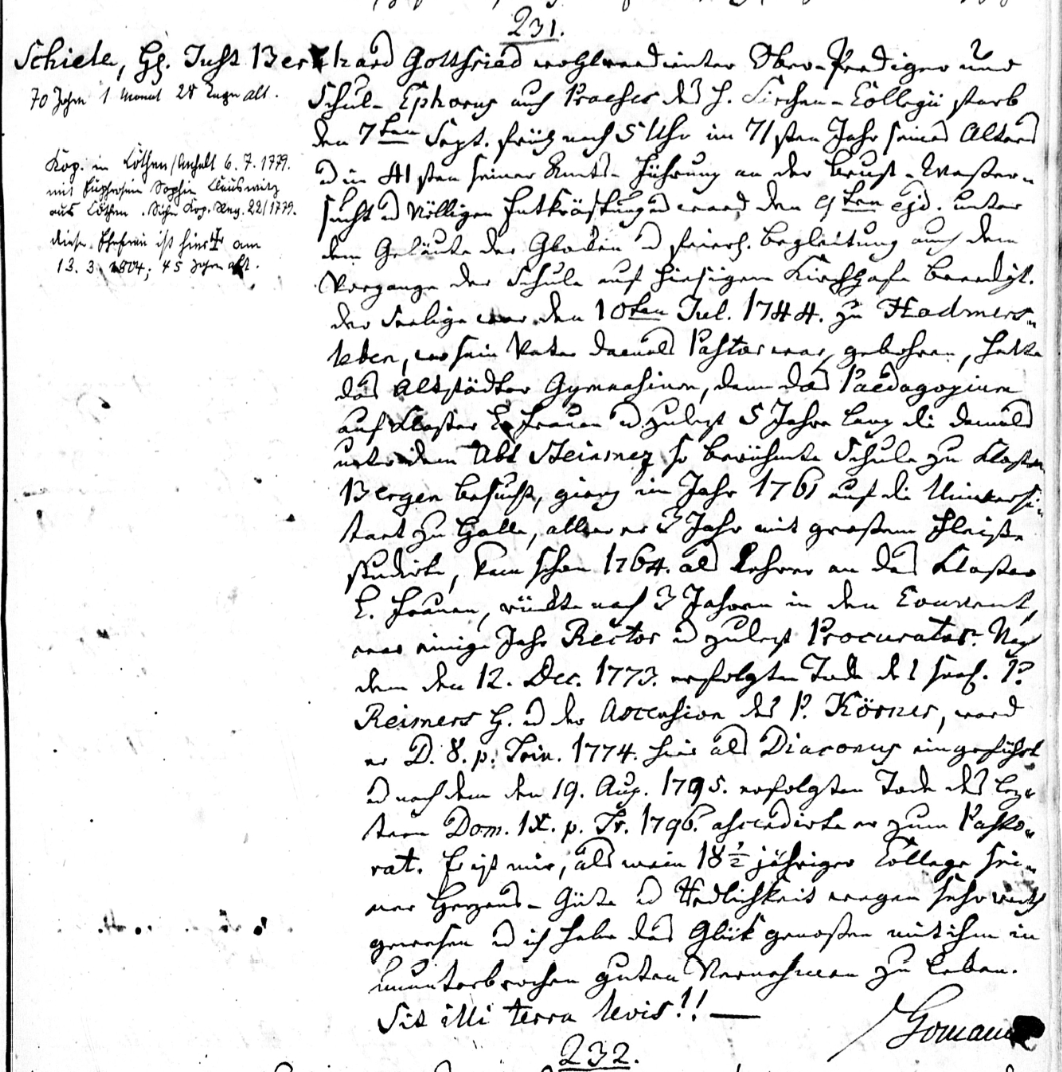 231.
Schiele, H. Just Bernhard Gottfried wohlverdienter Ober-Prediger und
70 Jahr 1 Monat 28 Tage alt.
Schul-Ephorus auch Praeses des h. Kirchen-Collegii starb
den 7ten Sept. früh nach 5 Uhr im 71sten Jahr seines Alters
Kop. in Cöthen/Anhalt 6. 7. 1779.
mit Sophie Clauswitz
aus Cöthen. Siehe Kop. Reg. 22/1779.
diese Ehefrau ist hier † am
13. 3. 1804; 45 Jahr alt.
u in 41sten seiner Amts-Führung an der Brust-Waßer-
sucht u völligen Entkräftung u ward den 9ten ejd. unter
dem Geläute der Glocken u feierl. Begleitung auch dem
Vorgange der Schule auf hiesigem Kirchhofe beerdigt.
der Seelige war den 10ten Jul. 1744. zu Hadmers-
leben, wo sein Vater damals Pastor war, gebohren, hatte
das Altstädter Gymnasium, dann das Paedagogium
auf Kloster L. Frauen u zulezt 5 Jahre lang die damals
unter dem Abt Steinmez so berühmte Schule zu Kloster
Bergen besucht, gieng im Jahr 1761 auf die Universi-
taet zu Halle, allwo er 3 Jahr mit großem Fleiße
studirte, kam schon 1764. als Lehrer an das Kloster
L. Frauen, rückte nach 3 Jahren in den Convent,
war einige Jahr Rector u zulezt Procurator. Nach
dem den 12. Dec. 1773. erfolgten Tode des seel. P.
Reimers H. u der Ascension des P. Körner, ward
er D. 8. p. Trin. 1774. hier als Diaconus eingeführt
u nach dem den 19. Aug. 1795. erfolgten Tode des lez-
tern Dom. IX. p. Tr. 1796. ascendirte er zum Pasto-
rat. Er ist mir, als mein 18 1/2 jähriger College sei-
ner Herzens-Güte u Redlichkeit wegen sehr werth
gewesen u ich habe das Glück genoßen mit ihm in
ununterbrochen guten Vernehmen zu leben.
Sit illi terra levis!! —
232.